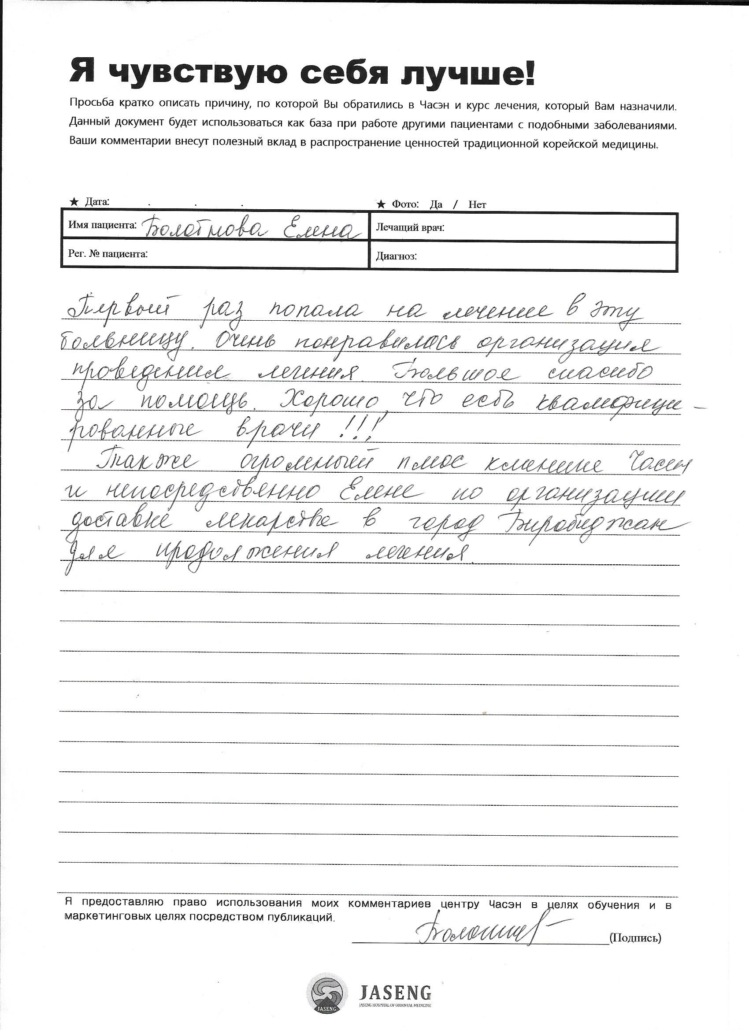 Я чувствую себя лучше!
Просьба кратко описать причину, по которой Вы обратились в Часэн и курс лечения, который Вам назначили.
Данный документ будет использоваться как база при работе другими пациентами с подобными заболеваниями.
Ваши комментарии внесут полезный вклад в распространение ценностей традиционной корейской медицины.
★ Дата: . . . ★ Фото: Да / Нет
Имя пациента: Болотнова Елена Лечащий врач:
Рег. № пациента: Диагноз:
Первый раз попала на лечение в эту
больницу. Очень понравилась организация
проведения лечения Большое спасибо
за помощь. Хорошо, что есть квалифици-
рованные врачи !!!
Также огромный плюс клинике Часен
и непосредственно Елене по организации
доставке лекарства в город Биробиджан
для продолжения лечения.
Я предоставляю право использования моих комментариев центру Часэн в целях обучения и в
маркетинговых целях посредством публикаций.
(Подпись)
JASENG
JASENG